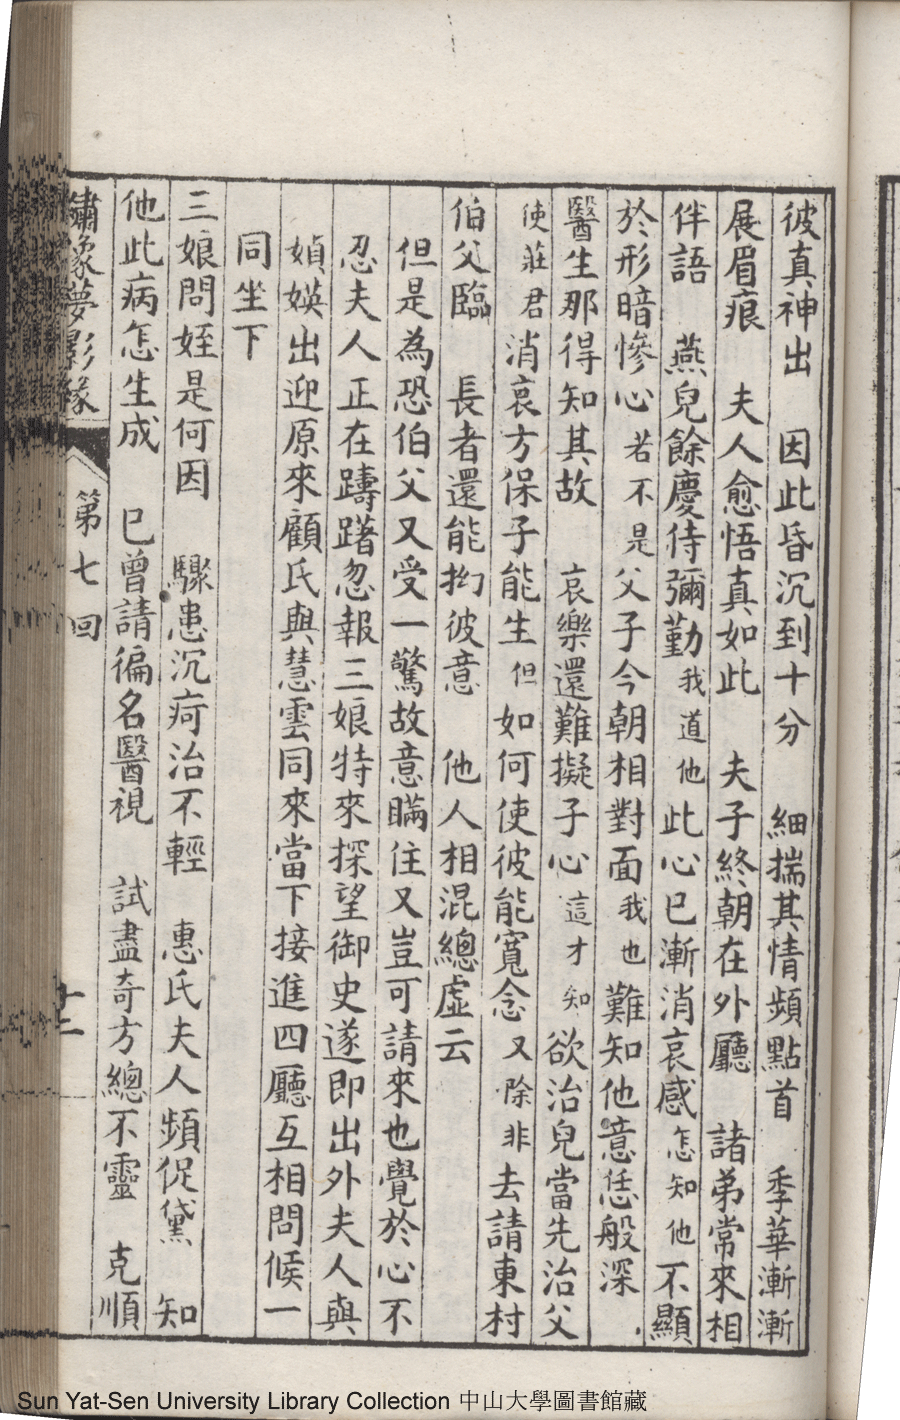 彼真神出　因此昏沉到十分　細揣其情頻點首　季華漸漸
展眉痕　夫人愈悟真如此　夫子終朝在外廳　諸弟常來相
伴語　燕兒餘慶待彌勤我道他此心已漸消哀感怎知他不顯
於形暗慘心若不是父子今朝相對面我也難知他意恁般深
醫生那得知其故　哀樂還難擬子心這才知欲治兒當先治父
使莊君消哀方保子能生但如何使彼能寬念又除非去請東村
伯父臨　長者還能抝彼意　他人相混總虛云
但是為恐伯父又受一驚故意瞞住又豈可請來也覺於心不
忍夫人正在躊躇忽報三娘特來探望御史遂即出外夫人與
媜媖出迎原來顧氏與慧雲同來當下接進四廳互相問候一
同坐下
三娘問姪是何因　驟患沉疴治不輕　惠氏夫人頻促黛　知
他此病怎生成　已曾請徧名醫視　試盡奇方總不靈　克順
繡像夢影緣　第七回　十二
Sun Yat-Sen University Library Collection 中山大學圖書館藏